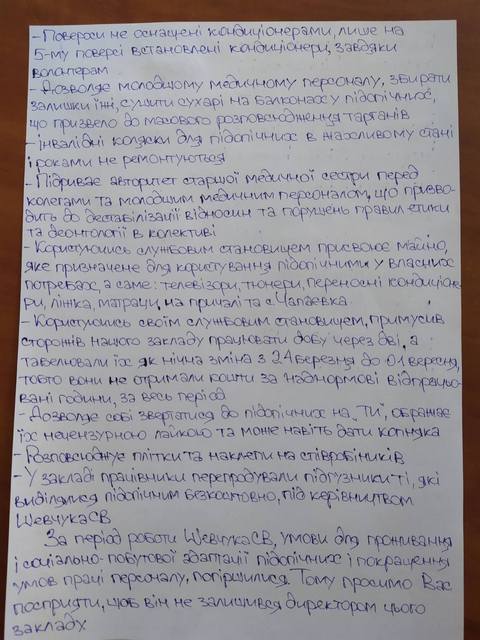 - Поверси не оснащені кондиціонерами, лише на
5-му поверсі встановлені кондиціонери, завдяки
волонтерам
- Дозволяє молодшому медичному персоналу, збирати
залишки їжі, сушити сухарі на балконах у підопічних,
що призвело до масового розповсюдження тарганів
- інвалідні коляски для підопічних в жахливому стані
і роками не ремонтуються
- Підриває авторитет старшої медичної сестри перед
колегами та молодшим медичним персоналом, що призво-
дить до дестабілізації відносин та порушень правил етики
та деонтології в колективі
- Користуючись службовим становищем присвоює майно,
яке призначене для користування підопічними у власних
потребах, а саме: телевізори, тюнери, переносні кондиціоне-
ри, ліжка, матраци, на причалі та с. Чапаєвка.
- Користуючись своїм службовим становищем, примусив
сторожів нашого закладу працювати добу через дві, а
табелювали їх як нічна зміна з 24 березня до 01 вересня,
тобто вони не отримали кошти за наднормові відпрацьо-
вані години, за весь період
- Дозволяє собі звертатися до підопічних на "ТИ", ображає
їх нецензурною лайкою та може навіть дати копняка
- Розповсюджує плітки та наклепи на співробіників
- У закладі працівники перепродували підгузники ті, які
виділялися підопічним безкоштовно, під керівництвом
Шевчука СВ
За період роботи Шевчука СВ, умови для проживання
і соціально-побутової адаптації підопічних і покращення
умов праці персоналу, погіршилися. Тому просимо Вас
посприяти, щоб він не залишився директором цього
закладу.